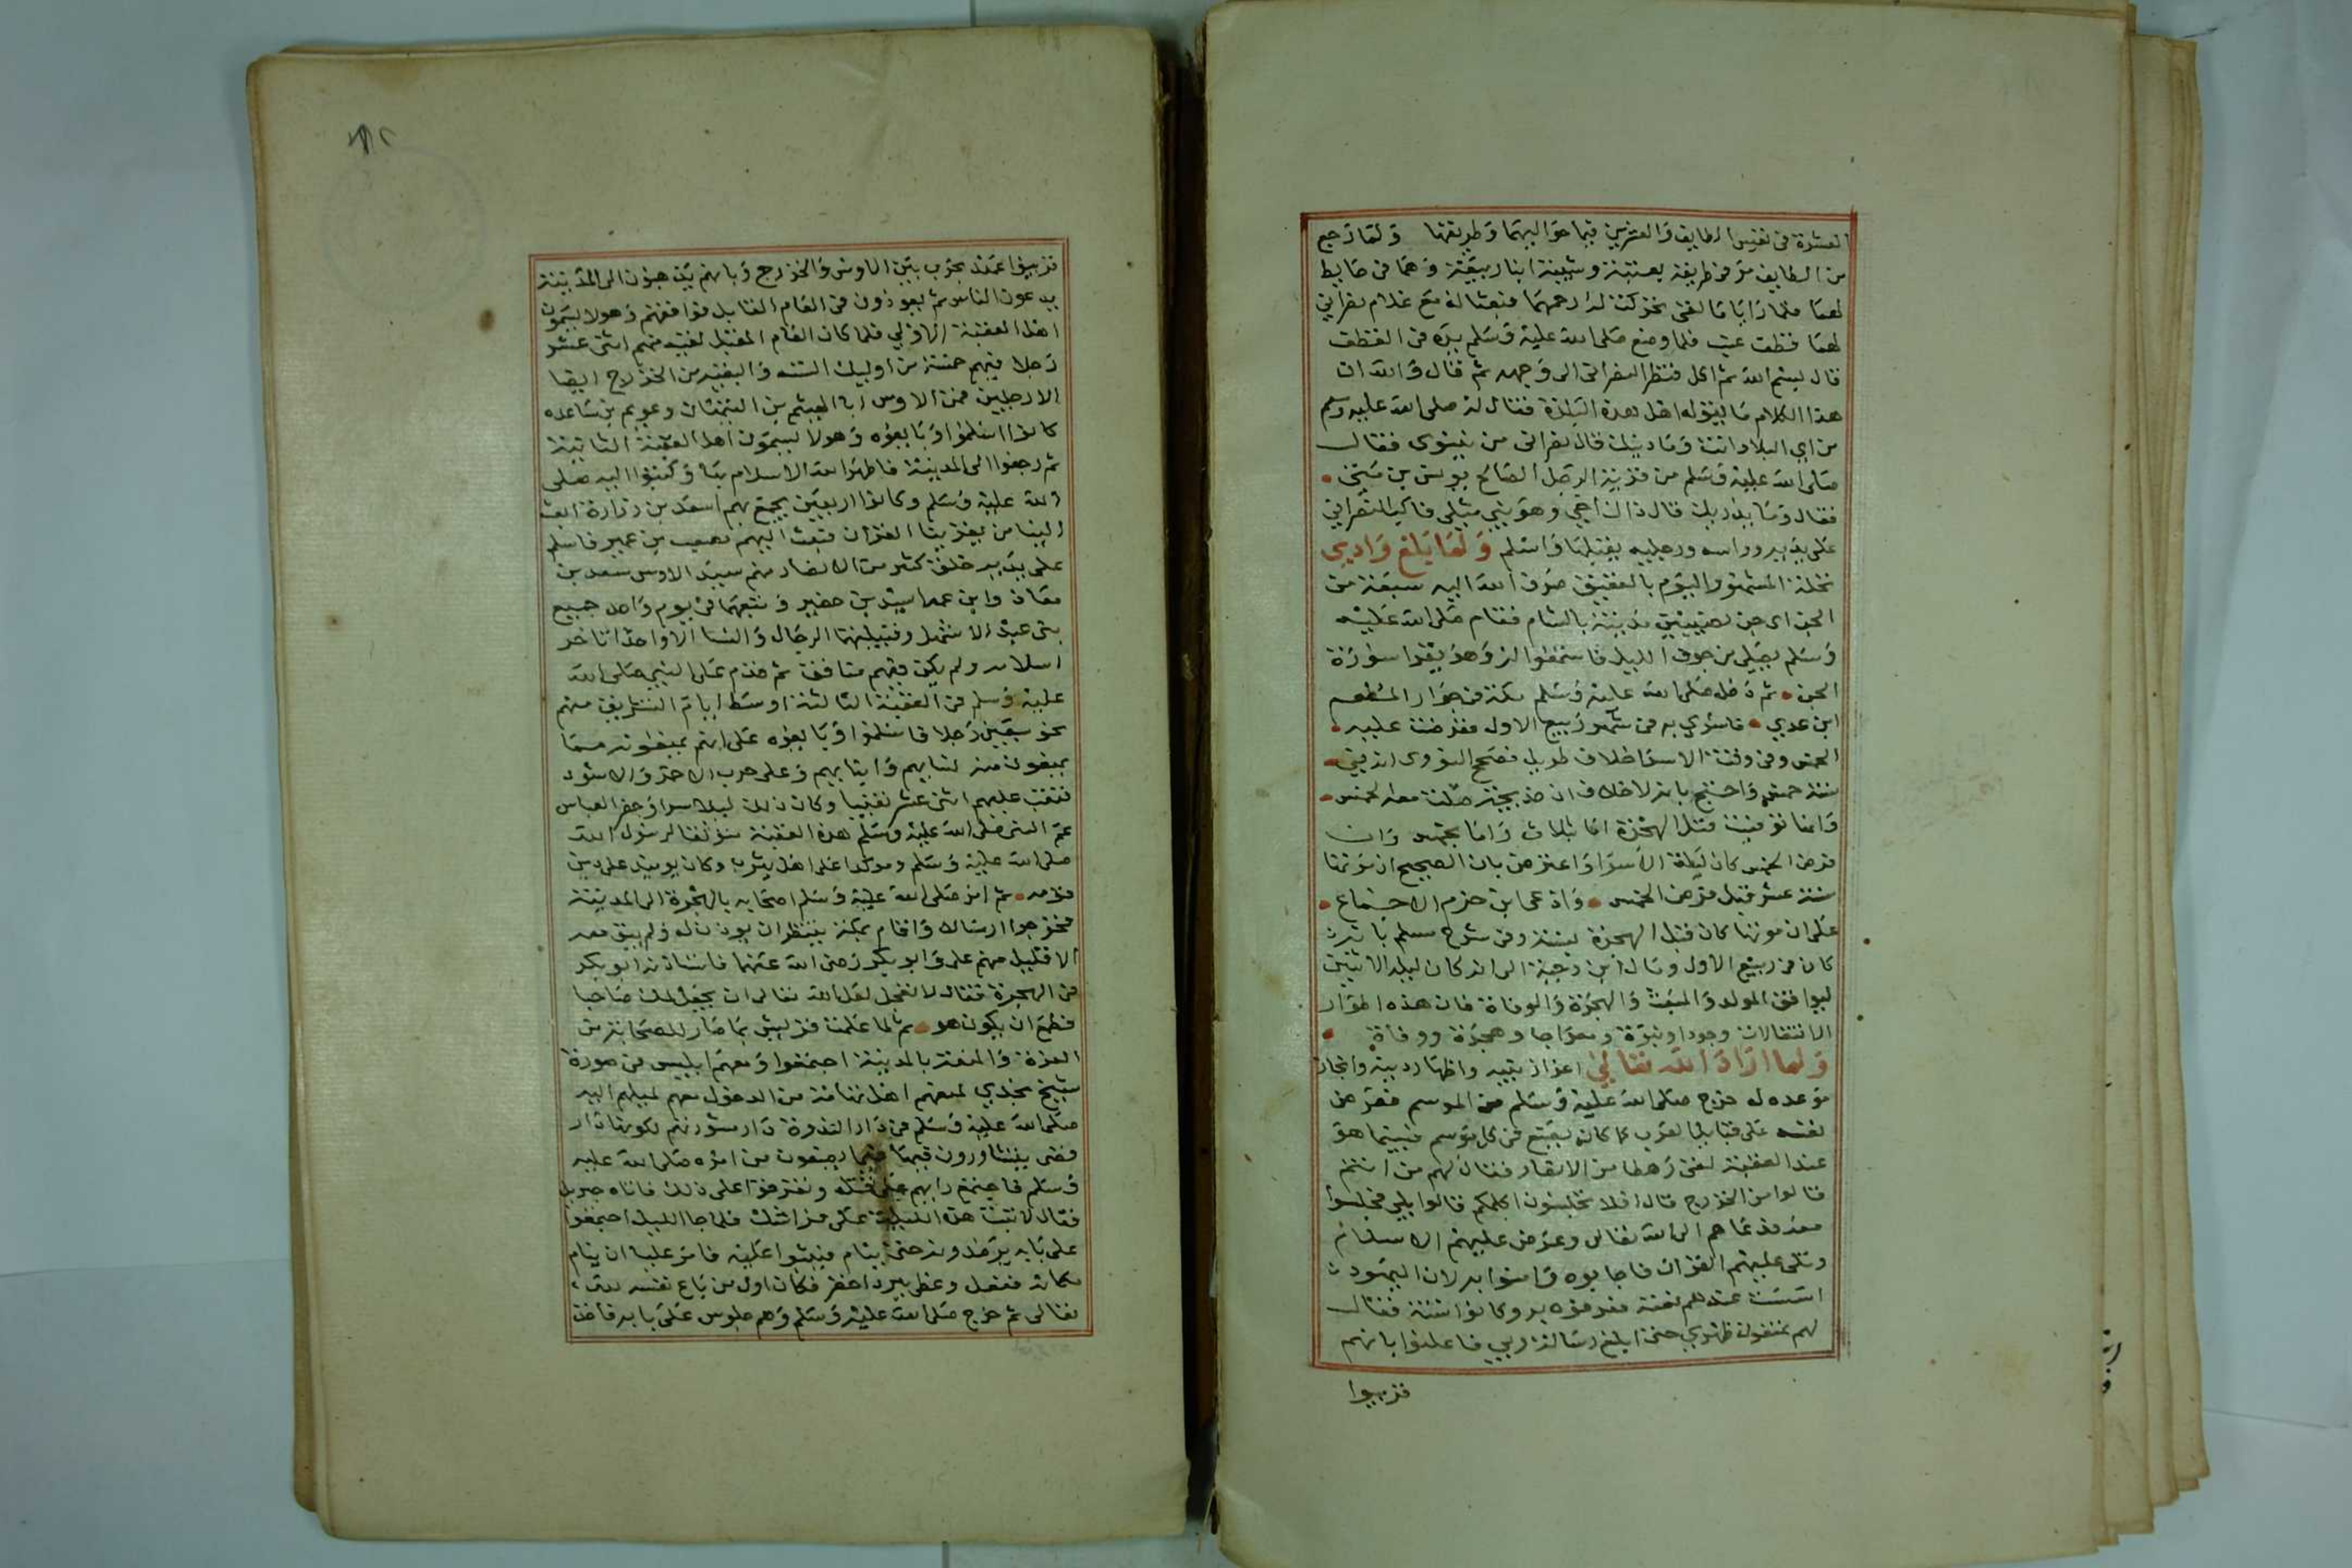 العشرة في نفس الطايف والعشرين فيما حواليهما وطريقها ولما رجع
من الطايف مر في طريقه بعتبة وشيبة ابنا ربيعة وهما في حايط
لهما فلما رايا ما لقى تحركت له رحمهما فبعثا له مع غلام نصراني
لهما قطف عنب فلما وضع صلى الله عليه وسلم يده في القطف
قال بسم الله ثم اكل فنظر النصراني الى وجهه ثم قال والله ان
هذا الكلام ما يقوله اهل هذه البلدة فقال له صلى الله عليه وسلم
من اي البلاد انت وما دينك قال نصراني من نينوى فقال
صلى الله عليه وسلم من قرية الرجل الصالح يونس بن متى
فقال وما يدريك قال ذاك اخي وهو نبي مثلي فاكب النصراني
على يديه وراسه ورجليه يقبلها واسلم ولما بلغ وادي
نخلة المشهور اليوم بالعقيق صرف الله اليه سبعة من
الجن اي جن نصيبين مدينة بالشام فقام صلى الله عليه
وسلم يصلي من جوف الليل فاستمعوا له وهو يقرا سورة
الجن ثم دخل صلى الله عليه وسلم مكة في جوار المطعم
ابن عدي فاسري به في شهر ربيع الاول ففرضت عليه
الخمس وفي وقت الاسرا خلاف طويل فصحح النووي انه في
سنة خمس واحتج بانه لا خلاف ان خديجة صلت معه الخمس
وانما توفيت قبل الهجرة اما بثلاث واما بخمس وان
فرض الخمس كان ليلة الاسرا واعترض بان الصحيح ان موتها
سنة عشر قبل فرض الخمس وادعى ابن حزم الاجماع
على ان موتها كان قبل الهجرة بسنة وفي شرح مسلم بانه
كان في ربيع الاول ومال ابن دحية الى انه كان ليلة الاثنين
ليوافق المولد والمبعث والهجرة والوفاة فان هذه اطوار
الانتقالات وجودا ونبوة ومعراجا وهجرة ووفاة
ولما اراد الله تعالى اعزاز نبيه واظهار دينه وانجاز
موعده له خرج صلى الله عليه وسلم من الموسم فعرض
نفسه على قبايل العرب كما كان يصنع في كل موسم فبينما هو
عند العقبة لقى رهطا من الانصار فقال لهم من انتم
قالوا من الخزرج قال افلا تجلسون اكلمكم قالوا بلى فجلسوا
معه فدعاهم الى الله تعالى وعرض عليهم الاسلام
وتلى عليهم القران فاجابوه وامنوا به لان اليهود
عندهم نعته فعرفوه به وكانوا ستة فقال
لهم تمنعون ظهري حتى ابلغ رسالة ربي فاعلموا بانهم
قريبوا
قريبوا عهد بحرب بين الاوس والخزرج وبانهم يذهبون الى المدينة
يدعون الناس ثم يعودون في العام القابل فوافقهم وهولا يسمون
اهل العقبة الاولى فلما كان العام المقبل لقيه منهم اثنى عشر
رجلا فيهم خمسة من اوليك الستة والبقية من الخزرج ايضا
الا رجلين فمن الاوس ابا الهيثم بن التيهان وعويم بن ساعده
كانوا اسلموا وبايعوه وهولا يسمون اهل العقبة الثانية
ثم رجعوا الى المدينة فاظهر الله الاسلام بها وكتبوا اليه صلى
الله عليه وسلم وكانوا اربعين يجمع بهم اسعد بن زرارة ابعث
الينا من يقرينا القران فبعث اليهم مصعب بن عمير فاسلم
على يديه خلق كثير من الانصار منهم سيد الاوس سعد بن
معاذ وابن عمه اسيد بن حضير وتبعهما في يوم واحد جميع
بني عبد الاشهل وقبيلتهما الرجال والنسا الا واحدا تاخر
اسلامه ولم يكن فيهم منافق ثم قدم على النبي صلى الله
عليه وسلم في العقبة الثالثة اوسط ايام التشريق منهم
نحو سبعين رجلا فاسلموا وبايعوه على انهم يمنعونه مما
يمنعون منه نسايهم وابنايهم وعلى حرب الاحمر والاسود
فنقب عليهم اثنى عشر نقيبا وكان ذلك ليلا سرا وحضر العباس
عم النبي صلى الله عليه وسلم هذه العقبة متوثقا لرسول الله
صلى الله عليه وسلم وموكدا على اهل يثرب وكان يوميذ على دين
قومه ثم امر صلى الله عليه وسلم اصحابه بالهجرة الى المدينة
فخرجوا ارسالا واقام بمكة ينتظر ان يوذن له ولم يبق معه
الا قليل منهم على وابو بكر رضى الله عنهما فاستاذنه ابو بكر
في الهجرة فقال لا تعجل لعل الله تعالى ان يجعل لك صاحبا
فطمع ان يكون هو ثم لما علمت قريش بما صار للصحابة من
العزة والمنعة بالمدينة اجتمعوا ومعهم ابليس في صورة
شيخ نجدي لمنعهم اهل تهامة من الدخول معهم لميلهم اليه
صلى الله عليه وسلم في دار الندوة دار مشورتهم لكونها دار
قصى يتشاورون فيها فيما يصنعون من امره صلى الله عليه
وسلم فاجتمع رايهم على قتله وتفرقوا على ذلك فاتاه جبريل
فقال لا تبت هذه الليلة على فراشك فلما جا الليل اجتمعوا
على بابه يرصدونه حتى ينام فيثبوا عليه فامر عليا ان ينام
مكانه ففعل وغطى ببرد اخضر فكان اول من باع نفسه لله
تعالى ثم خرج صلى الله عليه وسلم وهم جلوس على بابه فاخذ